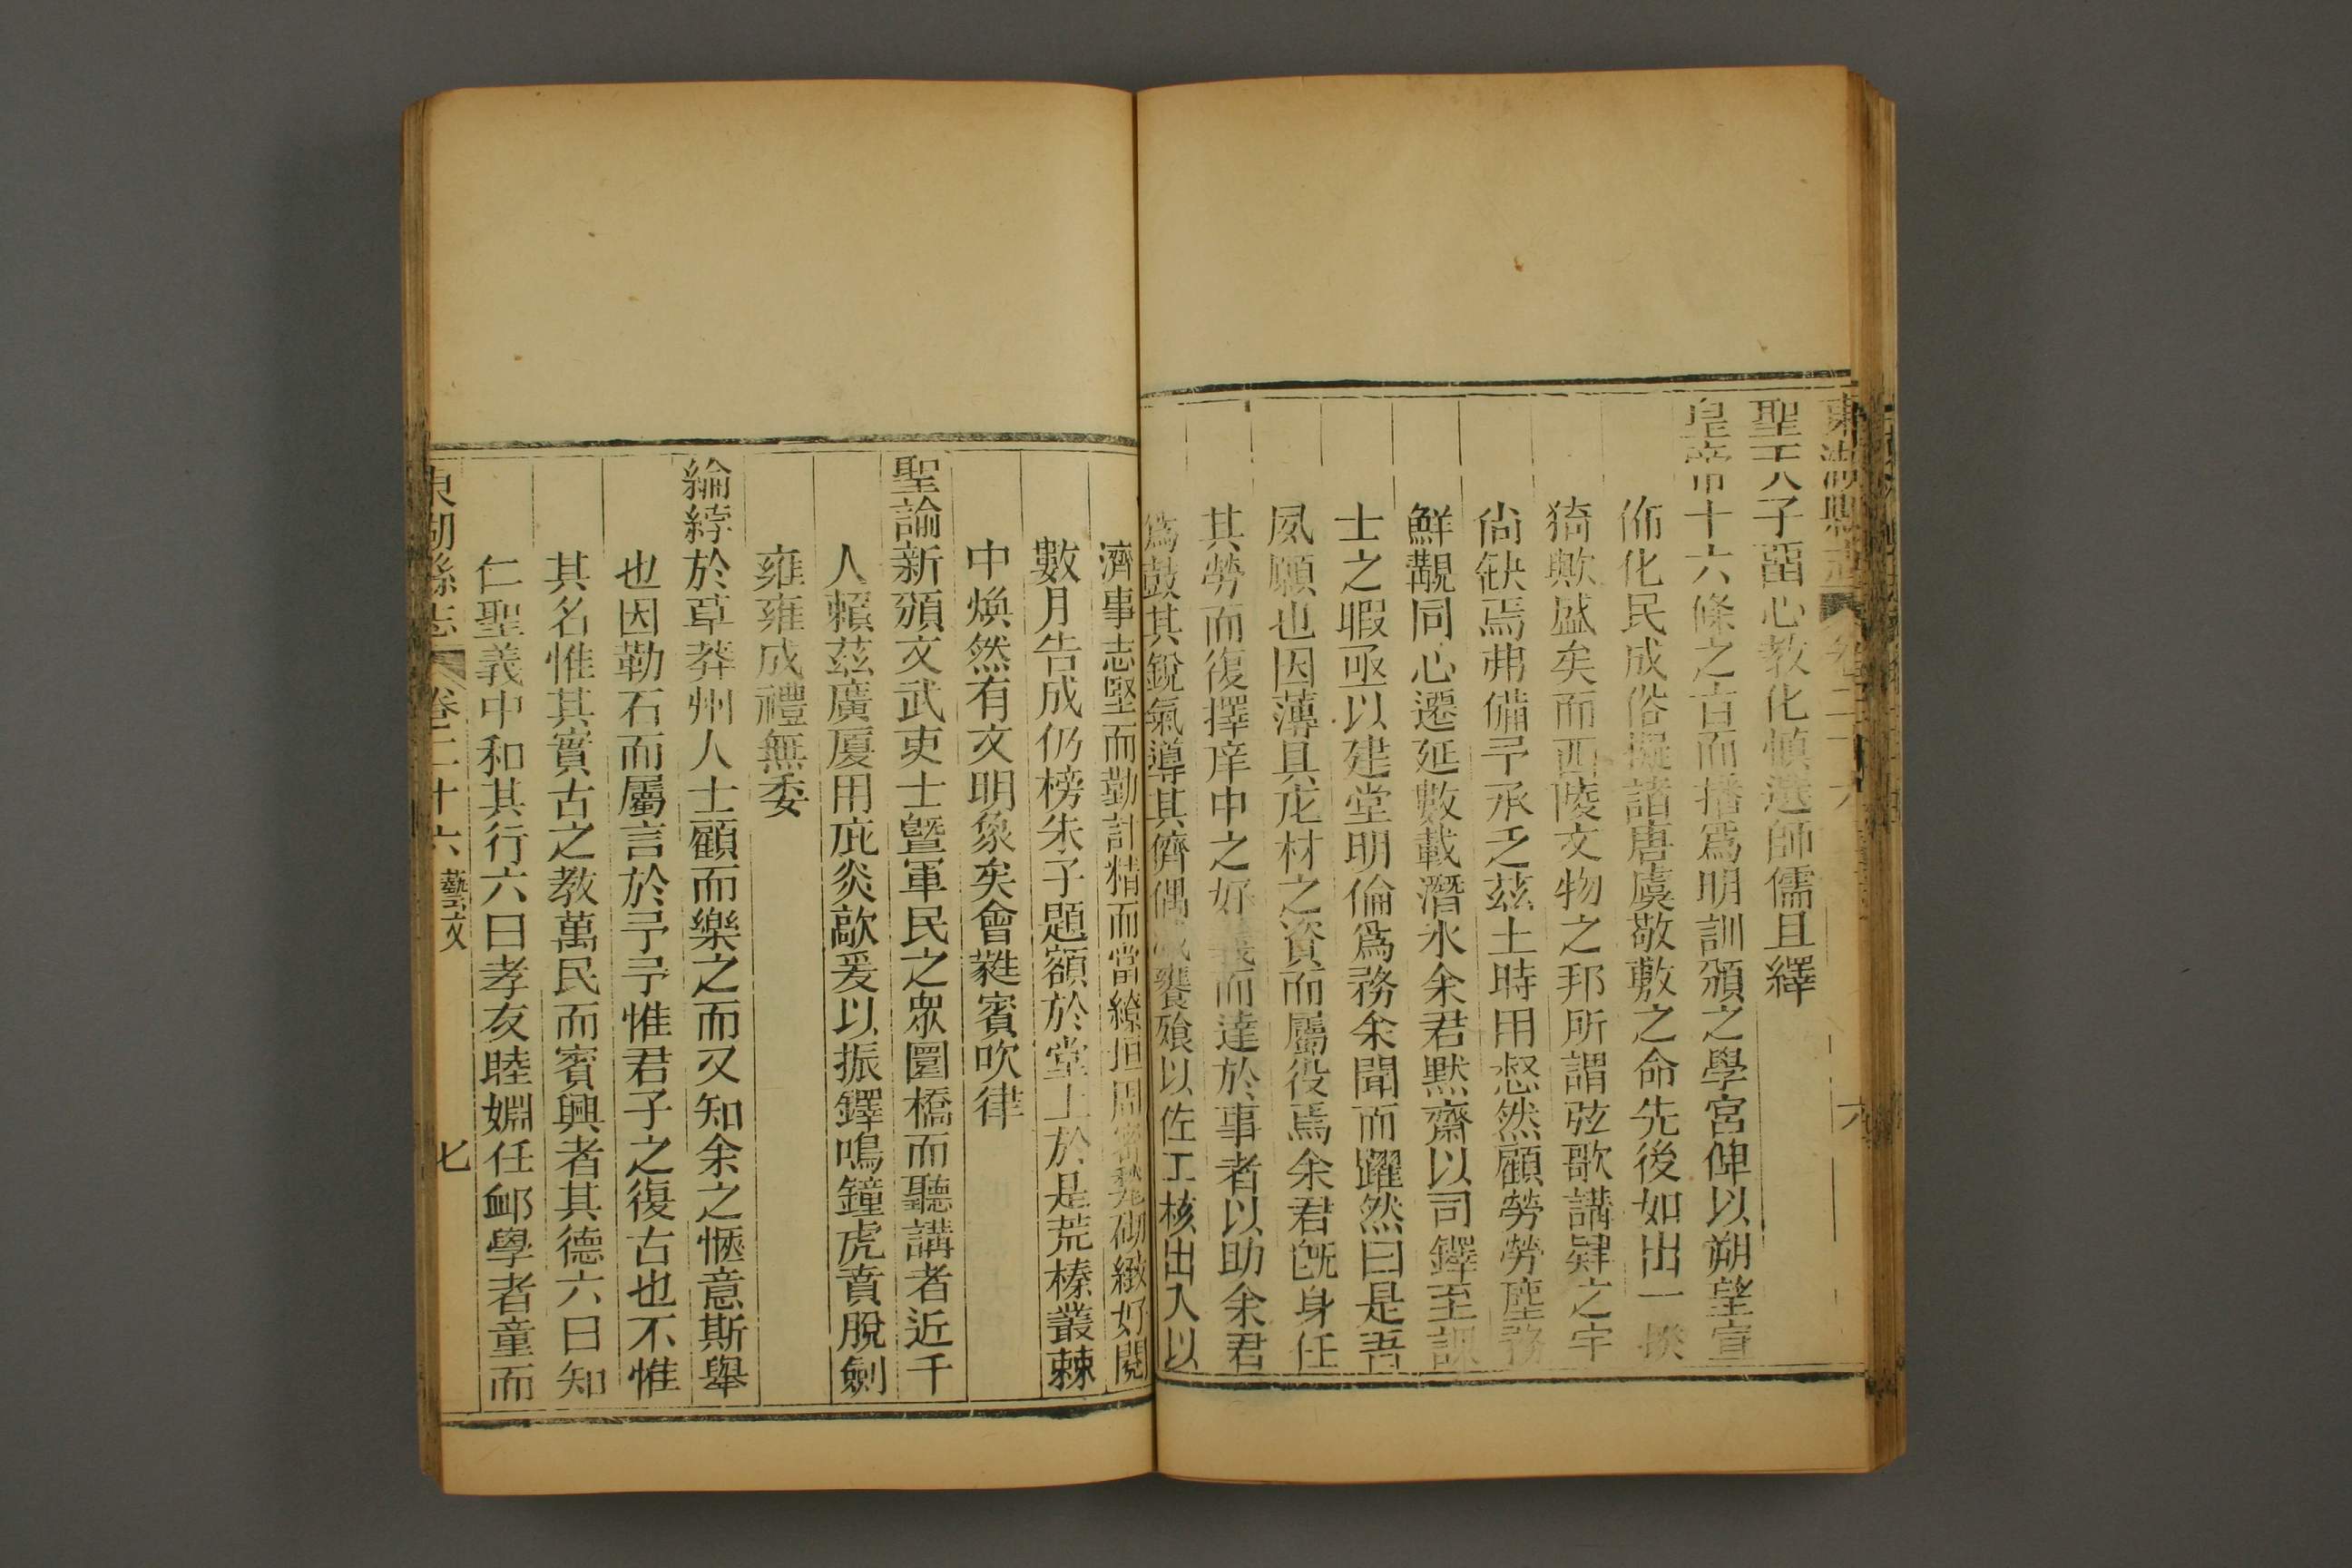 東湖縣志 卷二十六 六
聖天子畱心教化慎選師儒且繹
皇帝十六條之言而播爲明訓頒之學宮俾以朔望宣
佈化民成俗擬諸唐虞敬敷之命先後如出一揆
猗歟盛矣而西陵文物之邦所謂弦歌講肄之宇
尙缺焉弗備予承乏兹土時用惄然顧勞勞塵務
鮮覯同心遷延數載潛水余君默齋以司鐸至課
士之暇亟以建堂明倫爲務余聞而躍然曰是吾
夙願也因薄具庀材之資而屬役焉余君旣身任
其勞而復擇庠中之好義而達於事者以助余君
爲鼓其銳氣導其儕偶 饔飧以佐工核出入以
濟事志堅而勤計精而當繚垣周密甃砌緻好閱
數月告成仍榜朱子題額於堂上於是荒榛叢棘
中煥然有文明象矣會蕤賓吹律
聖諭新頒文武吏士曁軍民之眾圜橋而聽講者近千
人賴茲廣厦用庇炎歊爰以振鐸鳴鐘虎賁脫劍
雍雍成禮無委
綸綍於草莽州人士顧而樂之而又知余之愜意斯舉
也因勒石而屬言於予予惟君子之復古也不惟
其名惟其實古之教萬民而賓興者其德六曰知
仁聖義中和其行六曰孝友睦婣任卹學者童而
東湖縣志 卷二十六 藝文 七